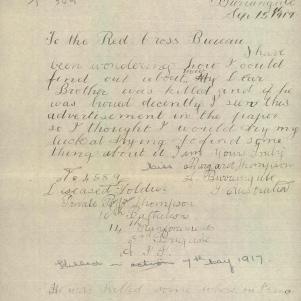 Burrungule
Sep 15th 1919
To the Red Cross Bureau
I have
been wondering how I could
find out about how My Dear
Brother was killed and if he
was buried decently I saw this
advertisement in the paper
so I thought I would try my
luck at trying to find some
thing about it I am Yours Truly
Miss Margaret Thompson
No 4559 Burrungule
Deceased Soldier S Australia
Private Thompson
10th Battalion
14 Reinforcements
Brigade
A I F
Killed in action 7th May 1917.
He was killed some where in